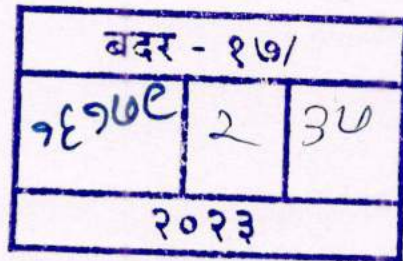 बदर - १७/
१६१७९ २ ३७
२०२३